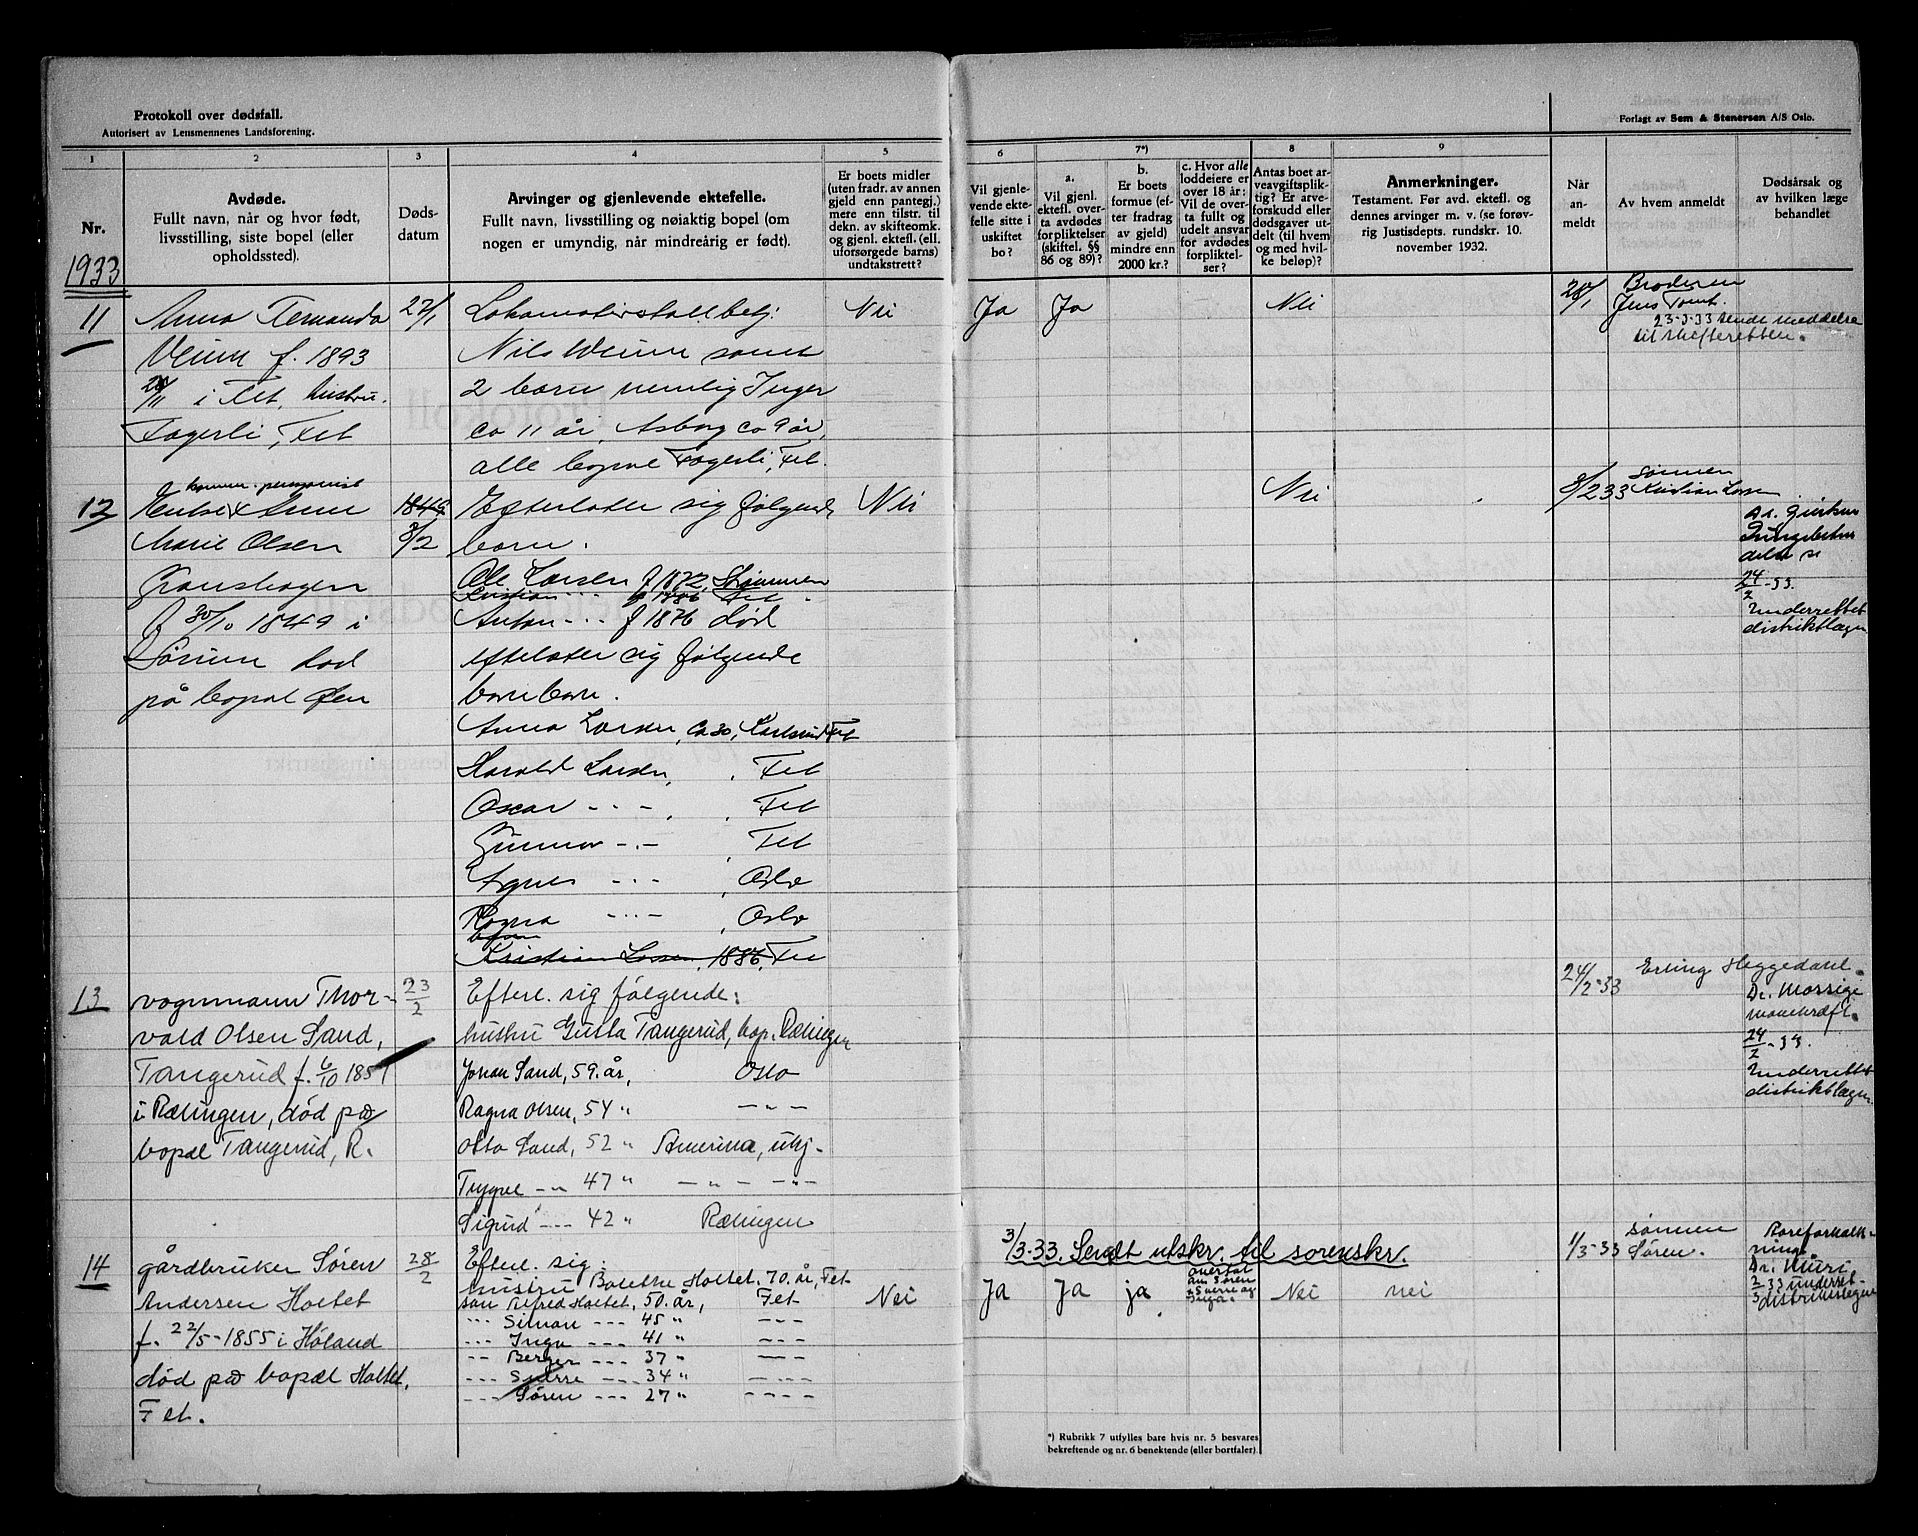 Protokoll over dødsfall.
Autorisert av Lensmennenes Landsforening.
Forlagt av Sem & Stenersen A/S Oslo.
1
2
3
4
5
6
7*)
8
9
Nr.
Avdøde.
Fullt navn, når og hvor født,
livsstilling, siste bopel (eller
opholdssted).
Døds-
datum
Arvinger og gjenlevende ektefelle.
Fullt navn, livsstilling og nøiaktig bopel (om
nogen er umyndig, når mindreårig er født).
Er boets midler
(uten fradr. av annen
gjeld enn pantegj.)
mere enn tilstr. til
dekn. av skifteomk.
og gjenl. ektefl. (ell.
uforsørgede barns)
undtakstrett?
Vil gjenle-
vende ekte-
felle sitte i
uskiftet
bo?
a.
Vil gjenl.
ektefl. over-
ta avdødes
forpliktelser
(skiftel. §§
86 og 89)?
b.
Er boets
formue (ef-
ter fradrag
av gjeld)
mindre enn
2000 kr.?
c. Hvor alle
loddeiere er
over 18 år:
Vil de over-
ta fullt og
udelt ansvar
for avdødes
forpliktel-
ser?
Antas boet ar-
veavgiftsplik-
tig? Er arve-
forskudd eller
dødsgaver ut-
delt (til hvem
og med hvil-
ke beløp)?
Anmerkninger.
Testament. Før avd. ektefl. og
dennes arvinger m. v. (se forøv-
rig Justisdepts. rundskr. 10.
november 1932.
Når
an-
meldt
Av hvem anmeldt
Dødsårsak og
av hvilken læge
behandlet
1933
11
Anna Fernanda
Veum f. 1893
/11 i Fet, hustru.
Fagerli, Fet
27/1
Lokomotivstallbetj.
Nils Veum samt
2 barn nemlig Inger
ca 11 år, Asborg ca 9 år,
alle bopæl Fagerli, Fet.
Nei
Ja
Ja
Nei
28/1
Broderen
Jens Tomt.
23-3-33 sendt meddelse
til skifteretten.
12
komm. pensjonist
Enke Anne
Marie Olsen
Granshagen
f 30/10 1849 i
Sørum død
på bopæl Øen
1849
3/2
Efterlater sig følgende
barn.
Ole Larsen f 1872, Strømmen
Kristian - - - f 1886 Fet
Anton - - - f 1876 død
efterlater sig følgende
barnebarn.
Anna Larsen, ca 30, Fet
Harald Larsen, Fet
Oscar - - - , Fet
Gunnar - . - , Fet
Agnes - - - , Oslo
Ragna - - - , Oslo
Kristian Larsen, 1886, Fet
Nei
Nei
8/2 33
Sønnen
Kristian Larsen
Dr.
24/2-33.
Underrettet
distriktlægen
13
vognmann Thor-
vald Olsen Sand,
Tangerud f. 6/10 1851
i Rælingen, død på
bopæl Tangerud, R.
23/2
Efterl. sig følgende:
hustru Gusta Tangerud, bop. Rælingen
Johan Sand, 59. år, Oslo
Ragna Olsen, 54 " - " -
Otto Sand, 52 " Amerika, ukj.
Trygve - " 47 " - " - - " -
Sigurd - - - 42 " Rælingen
24/2-33
Erling Heggedahl.
Dr. Mossige
mavekræft.
24/2-33.
Underrettet
distriktlægen
14
gårdbruker Søren
Andersen Holtet
f. 22/5-1855 i Høland
død på bopæl Holtet,
Fet.
28/2
Efterl. sig:
hustru Bolethe Holtet. 70. år, Fet
søn Alfred Holtet, 50. år, Fet
- - - Simon - - - 45 " - - -
- - - Inga - - - 41 " - - -
- - Berger - - - 37 " - - -
- - - Sverre - - - 34 " - - -
- - - Søren - - - 27 " - - - -
Nei
3/3-33. Sendt utskr. til sorenskr.
Ja
Ja
ja
overtat
av Søren
Sverre og
Inga.
Nei
nei
1/3-33
sønnen
Søren.
Åreforkalk-
ning.
Dr. Muri
2/3 33 underret-
distriktslægen
*) Rubrikk 7 utfylles bare hvis nr. 5 besvares
bekreftende og nr. 6 benektende (eller bortfaler).